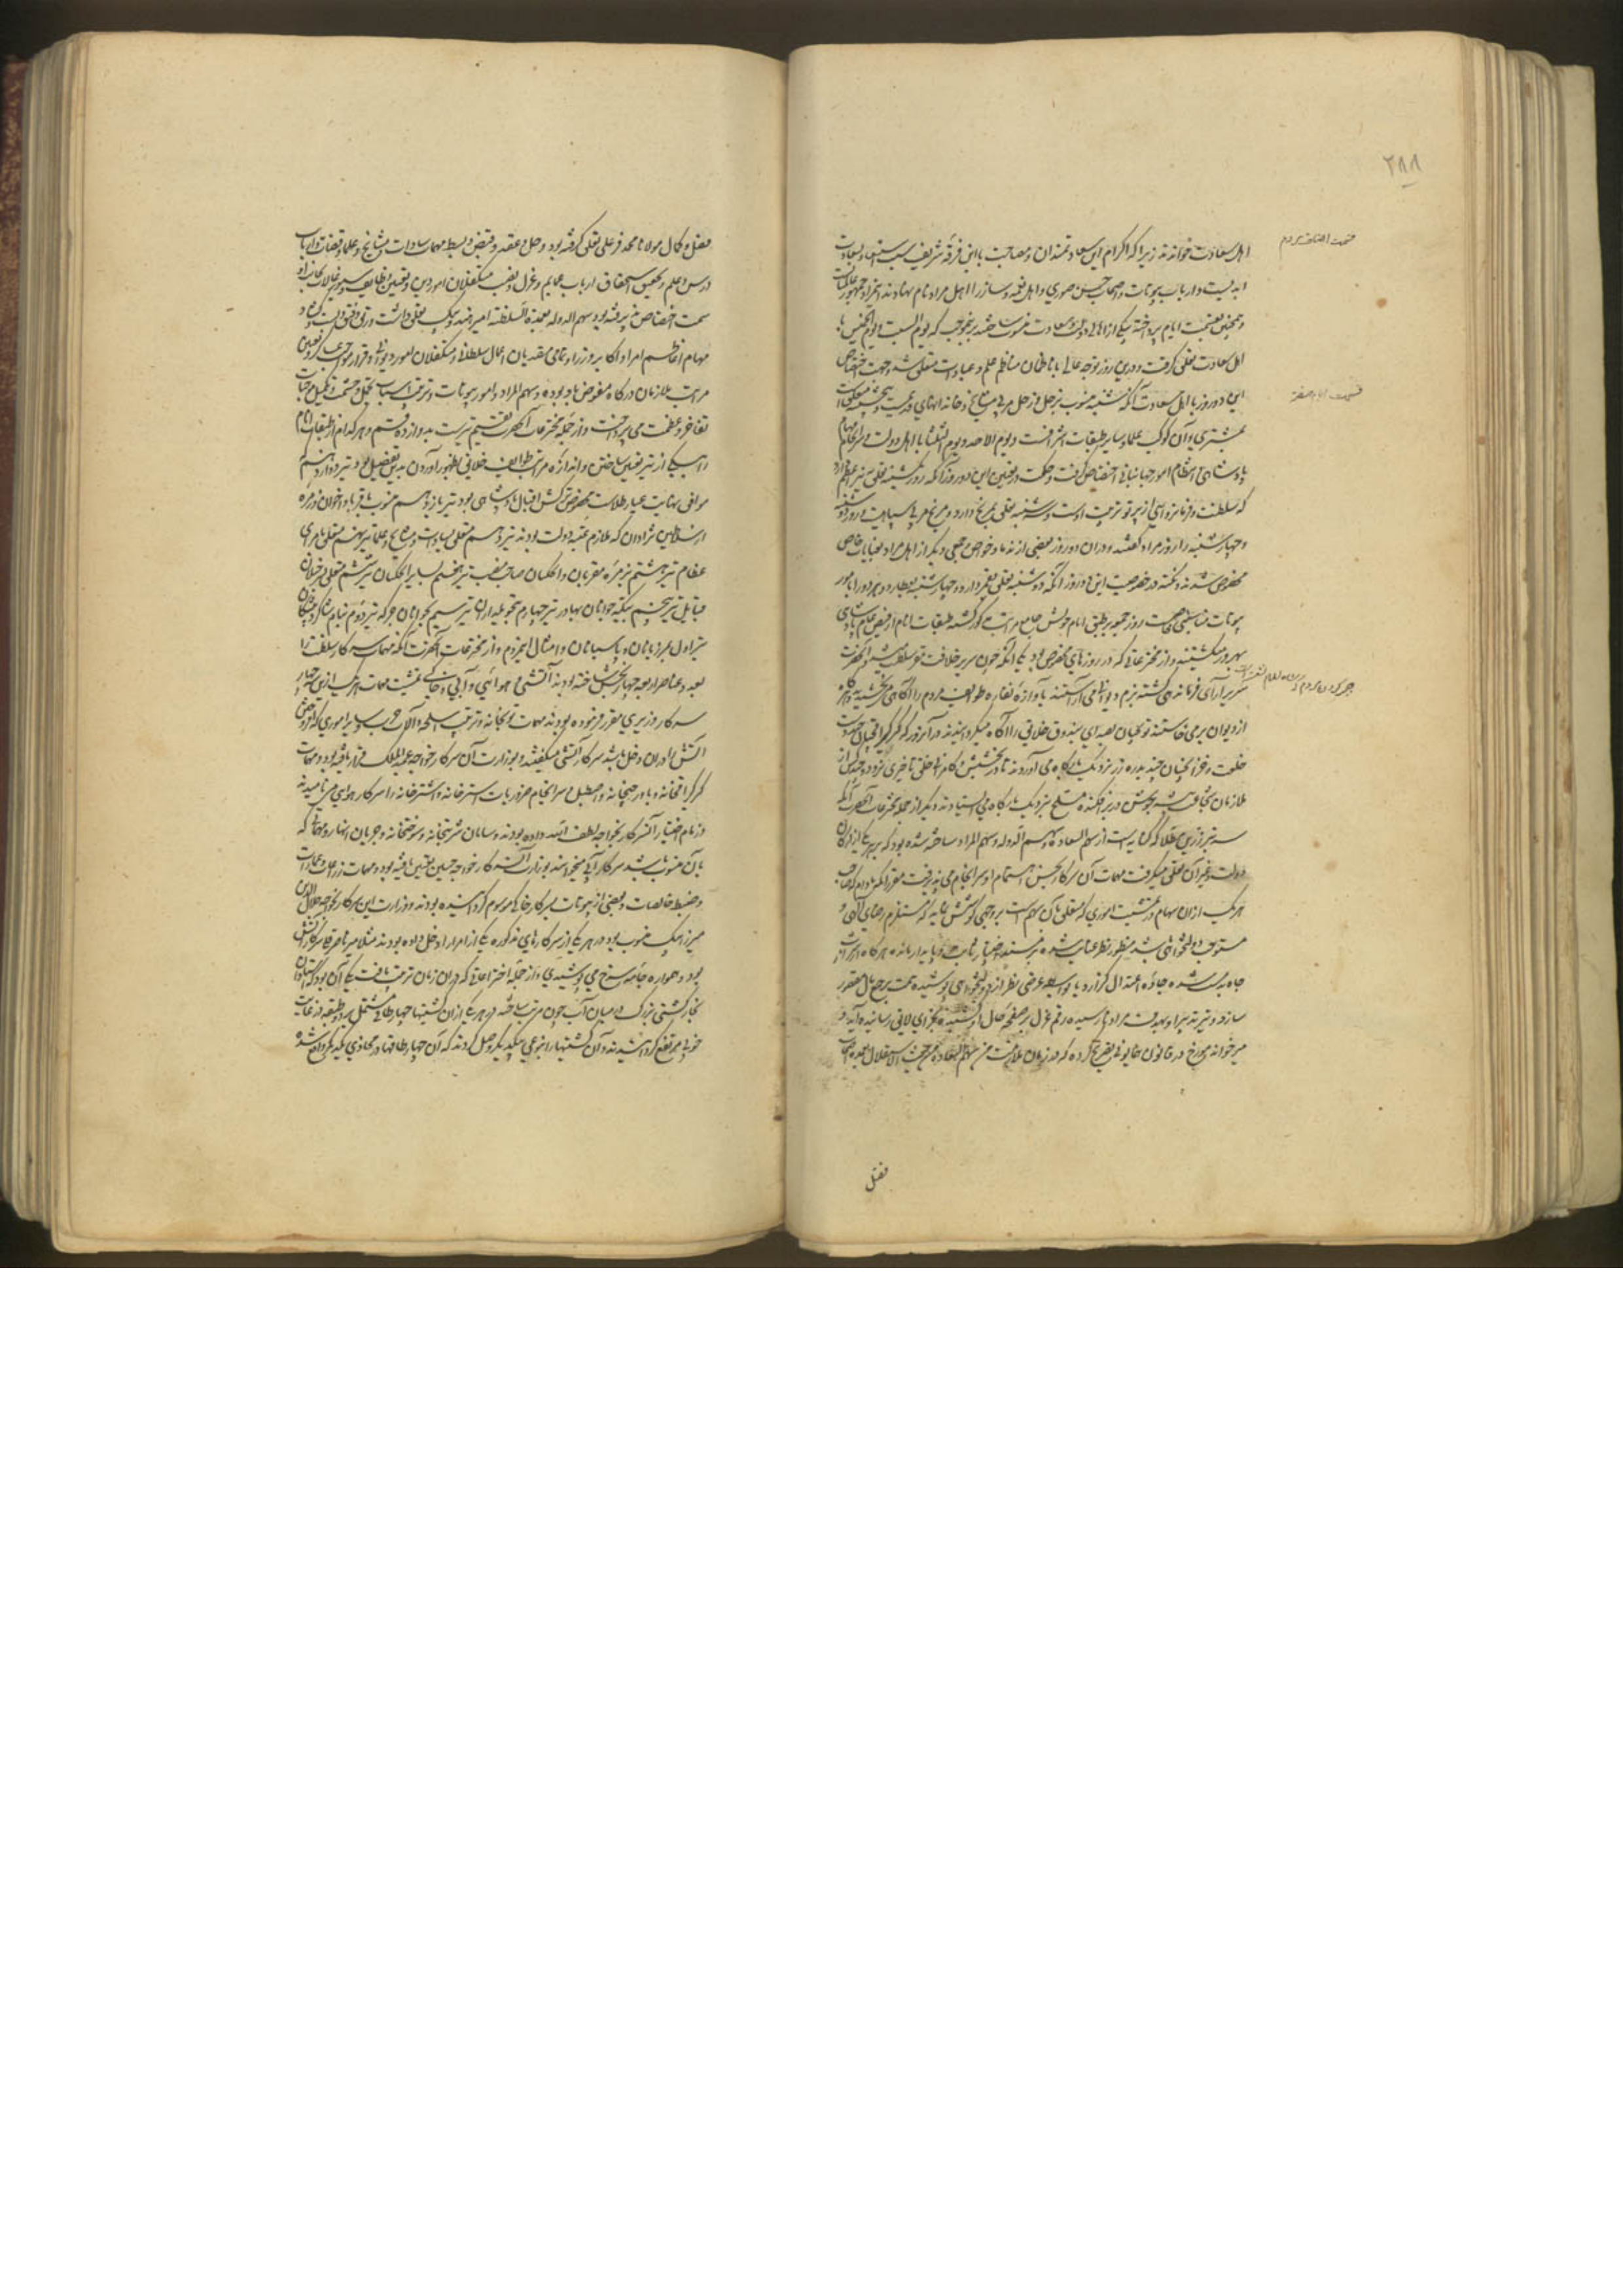 ۲۸۸
اهل سعادت خواندند زیرا که اکرام این سعادتمندان و مصاحبت با این فرقه شریف سبب سعادت
ابدیست و ارباب بیوتات و اصحاب حسن صوری و اهل نغمه و ساز را اهل مراد نام نهادند
و همچنین بقسمت ایام پرداخته یکی از اهالی دولت و سعادت منسوب ساختند برینموجب که یوم السبت و یوم الخمیس با
اهل سعادت تعلق گرفت و درین دو روز توجه عالی با ناظمان مناظم علم و عبادت متعلق شد و جهت اختصاص
این دو روز با اهل سعادت آنکه شنبه منسوب بزحل و زحل مربی مشایخ و خاندانهای قدیمست و پنجشنبه متعلق است
بمشتری و آن کوکب علما و سایر طبقات اشرافست و یوم الاحد و یوم الثلثا با اهل دولت و سرانجام مهام
پادشاهی و انتظام امور جهانبانی اختصاص گرفت و حکمت در تعیین این دو روز آنکه روز یکشنبه تعلق بنیر اعظم دارد
که سلطنت و فرمانروایی از پرتو تربیت اوست و سه شنبه تعلق بمریخ دارد و مریخ مربی سپاهیست و روز دوشنبه
و چهارشنبه را روز مراد گفتند و دران دو روز بعضی از ندما و خواص و جمعی دیگر از اهل مراد بعنایات خاص
مخصوص شدند و نکته در خصوصیت این دو روز آنکه دوشنبه تعلق بقمر دارد و چهارشنبه بعطارد و هر دو را بامور
بیوتات مناسبتی هست و روز جمعه بر طبق نام خویش جامع مراتب مذکور گشته طبقات انام از فیض عام پادشاهی
بهره‌ور میگشتند و از مخترعاتی که در روزهای مخصوص بود یکی آنکه چون سریر خلافت
سریر آرای فرمانروائی گشته بزم دیوانی می‌آراستند باواز نقاره طوایف مردم را آگاهی می‌بخشیدند و هرگاه
از دیوان برمیخاستند توپچیان بصدای بندوق خلایق را آگاه میگردانیدند و در آن روز کرکراقچیان چند دست
خلعت و خزانچیان چند بدره زر نزدیک بارگاه می آوردند تا در بخشش و کامروائی خلق تاخیری نرود و چند کس از
ملازمان شجاعت پیشه جوشن در بر افکنده مسلح نزدیک بارگاه می ایستادند و دیگر از جمله مخترعات آنحضرت آنکه
سه تیر زرین مطلا که کنایه است از سهم السعاده و سهم الدوله و سهم المراد ساخته شده بود که هر یکی از ارکان
دولت و غیر آن تعلق میگرفت مهمات آن سرکار بحسن اهتمام او سرانجام می پذیرفت مقرر آنکه مادام که صاحب
هر یک ازان سهام در تمشیت اموری که متعلق بآن سهم است بر وجهی کوشش نماید که مستلزم رضای الهی و
مستوجب دولتخواهی باشد منظور نظر عنایت شده بر مسند اختیار ثابت و پایدار ماند و هرگاه از شراب
جاه بدمست شده جاده اعتدال گذارد یا بواسطه غرضی نظر از دولتخواهی پوشیده همت بر جمع مال مقصور
سازد و تیر تدبیر او بهدف مراد نارسیده رقم عزل بر صفحه حال او کشیده بجزای لایق رسانیده آید و
میرخواند مورخ در قانون همایونی تصریح کرده که در زمان ملازمت من سهم السعاده من حیث الاستقلال بعمده اصحاب
قسمت اصناف مردم
قسمت ایام هفته
فضل
فضل و کمال مولانا محمد فرغلی تعلق گرفته بود و حل و عقد و قبض و بسط مهمات سادات و مشایخ و علما و قضات و ارباب
درس و علم و تحقیق استحقاق ارباب عمایم و عزل و نصب متکفلان امور دین و تعیین وظایف و سیورغالات بجانب او
سمت اختصاص پذیرفته بود و سهم الدوله بعمدة السلطنه امیر هندو بیک تعلق داشت و رتق و فتق و بست و گشاد
مهام اعاظم امرا و اکابر وزرا و تمامی متصدیان اعمال سلطانی و متکفلان امور دیوانی و قرار مواجب عساکر و تعیین
مراتب ملازمان درگاه مفوض باو بوده و سهم المراد و امور بیوتات و ترتیب اسباب تجمل و حشمت و تکمیل موجبات
تفاخر و عظمت می پرداخت و از جمله مخترعات آنحضرت تقسیم تیرست بدوازده قسم و هر کدام از طبقات انام
را بیکی از تیر تعیین ساختن و اندازه مراتب طوایف خلایق بظهور آوردن بدین تفصیل بود تیر دوازدهم
موافق نهایت عیار طلاست مخصوص ترکش اقبال پادشاهی بود تیر یازدهم منسوب باقربا و اخوان و زمره
از سلاطین نژادان که ملازم عتبه دولت بودند تیر دهم متعلق بسادات و مشایخ و علما تیر نهم متعلق بامرای
عظام تیر هشتم بزمره مقربان و ایچکیان صاحب منصب تیر هفتم بسایر ایچکیان تیر ششم متعلق بسرخیلان
قبایل تیر پنجم بیکه جوانان بهادر تیر چهارم بتحویلداران تیر سیم بجوانان جرگه تیر دوم بنام شاگرد پیشگان
تیر اول بدربانان و پاسبانان و امثال این مردم و از مخترعات آنحضرت آنکه مهمات سرکار سلطنت را
بعدد عناصر اربعه چهار بخش ساخته بودند آتشی و هوائی و آبی و خاکی و بجهت تمشیت مهمات هر یک ازین چهار
سرکار وزیری مقرر فرموده بودند مهمات توپخانه و ترتیب اسلحه و آلات حرب و سایر اموری که افروختن
آتش را دران دخل باشد سرکار آتشی میگفتند و بوزارت آن سرکار خواجه عبدالملک قرار یافته بود و مهمات
کرکراقخانه و باورچیخانه و اصطبل و سرانجام ضروریات استرخانه و اشترخانه را سرکار هوائی می نامیدند
و زمام اختیار آن سرکار بخواجه لطف الله داده بودند و سامان شربتخانه و سوجیخانه و جریان انهار و مهماتی که
بآب منسوب باشد سرکار آبی میخواندند و بوزارت آن سرکار خواجه حسین تعیین یافته بود و مهمات زراعت و عمارات
و ضبط خالصات و بعضی از بیوتات بسرکار خاکی موسوم گردانیده بودند و وزارت این سرکار بخواجه جلال الدین
میرزا بیک منسوب بود و در هر یکی از سرکارهای مذکوره یکی از امرا را دخل داده بودند مثلا میر ناصر قلی سرکار آتش
بود و همواره جامه سرخ می پوشیدی و از جمله اختراعاتی که دران زمان ترتیب یافت یکی آن بود که استادان
نجار کشتی بزرگ در میان آب جون مرتب ساخته و در هر یکی ازان کشتیها چهار طاقی مشتمل بر دو طبقه در غایت
خوبی مرتفع گردانیدند و آن کشتیها را بنوعی بیکدیگر وصل کردند که آن چهار طاقها در محاذی یکدیگر واقع شد